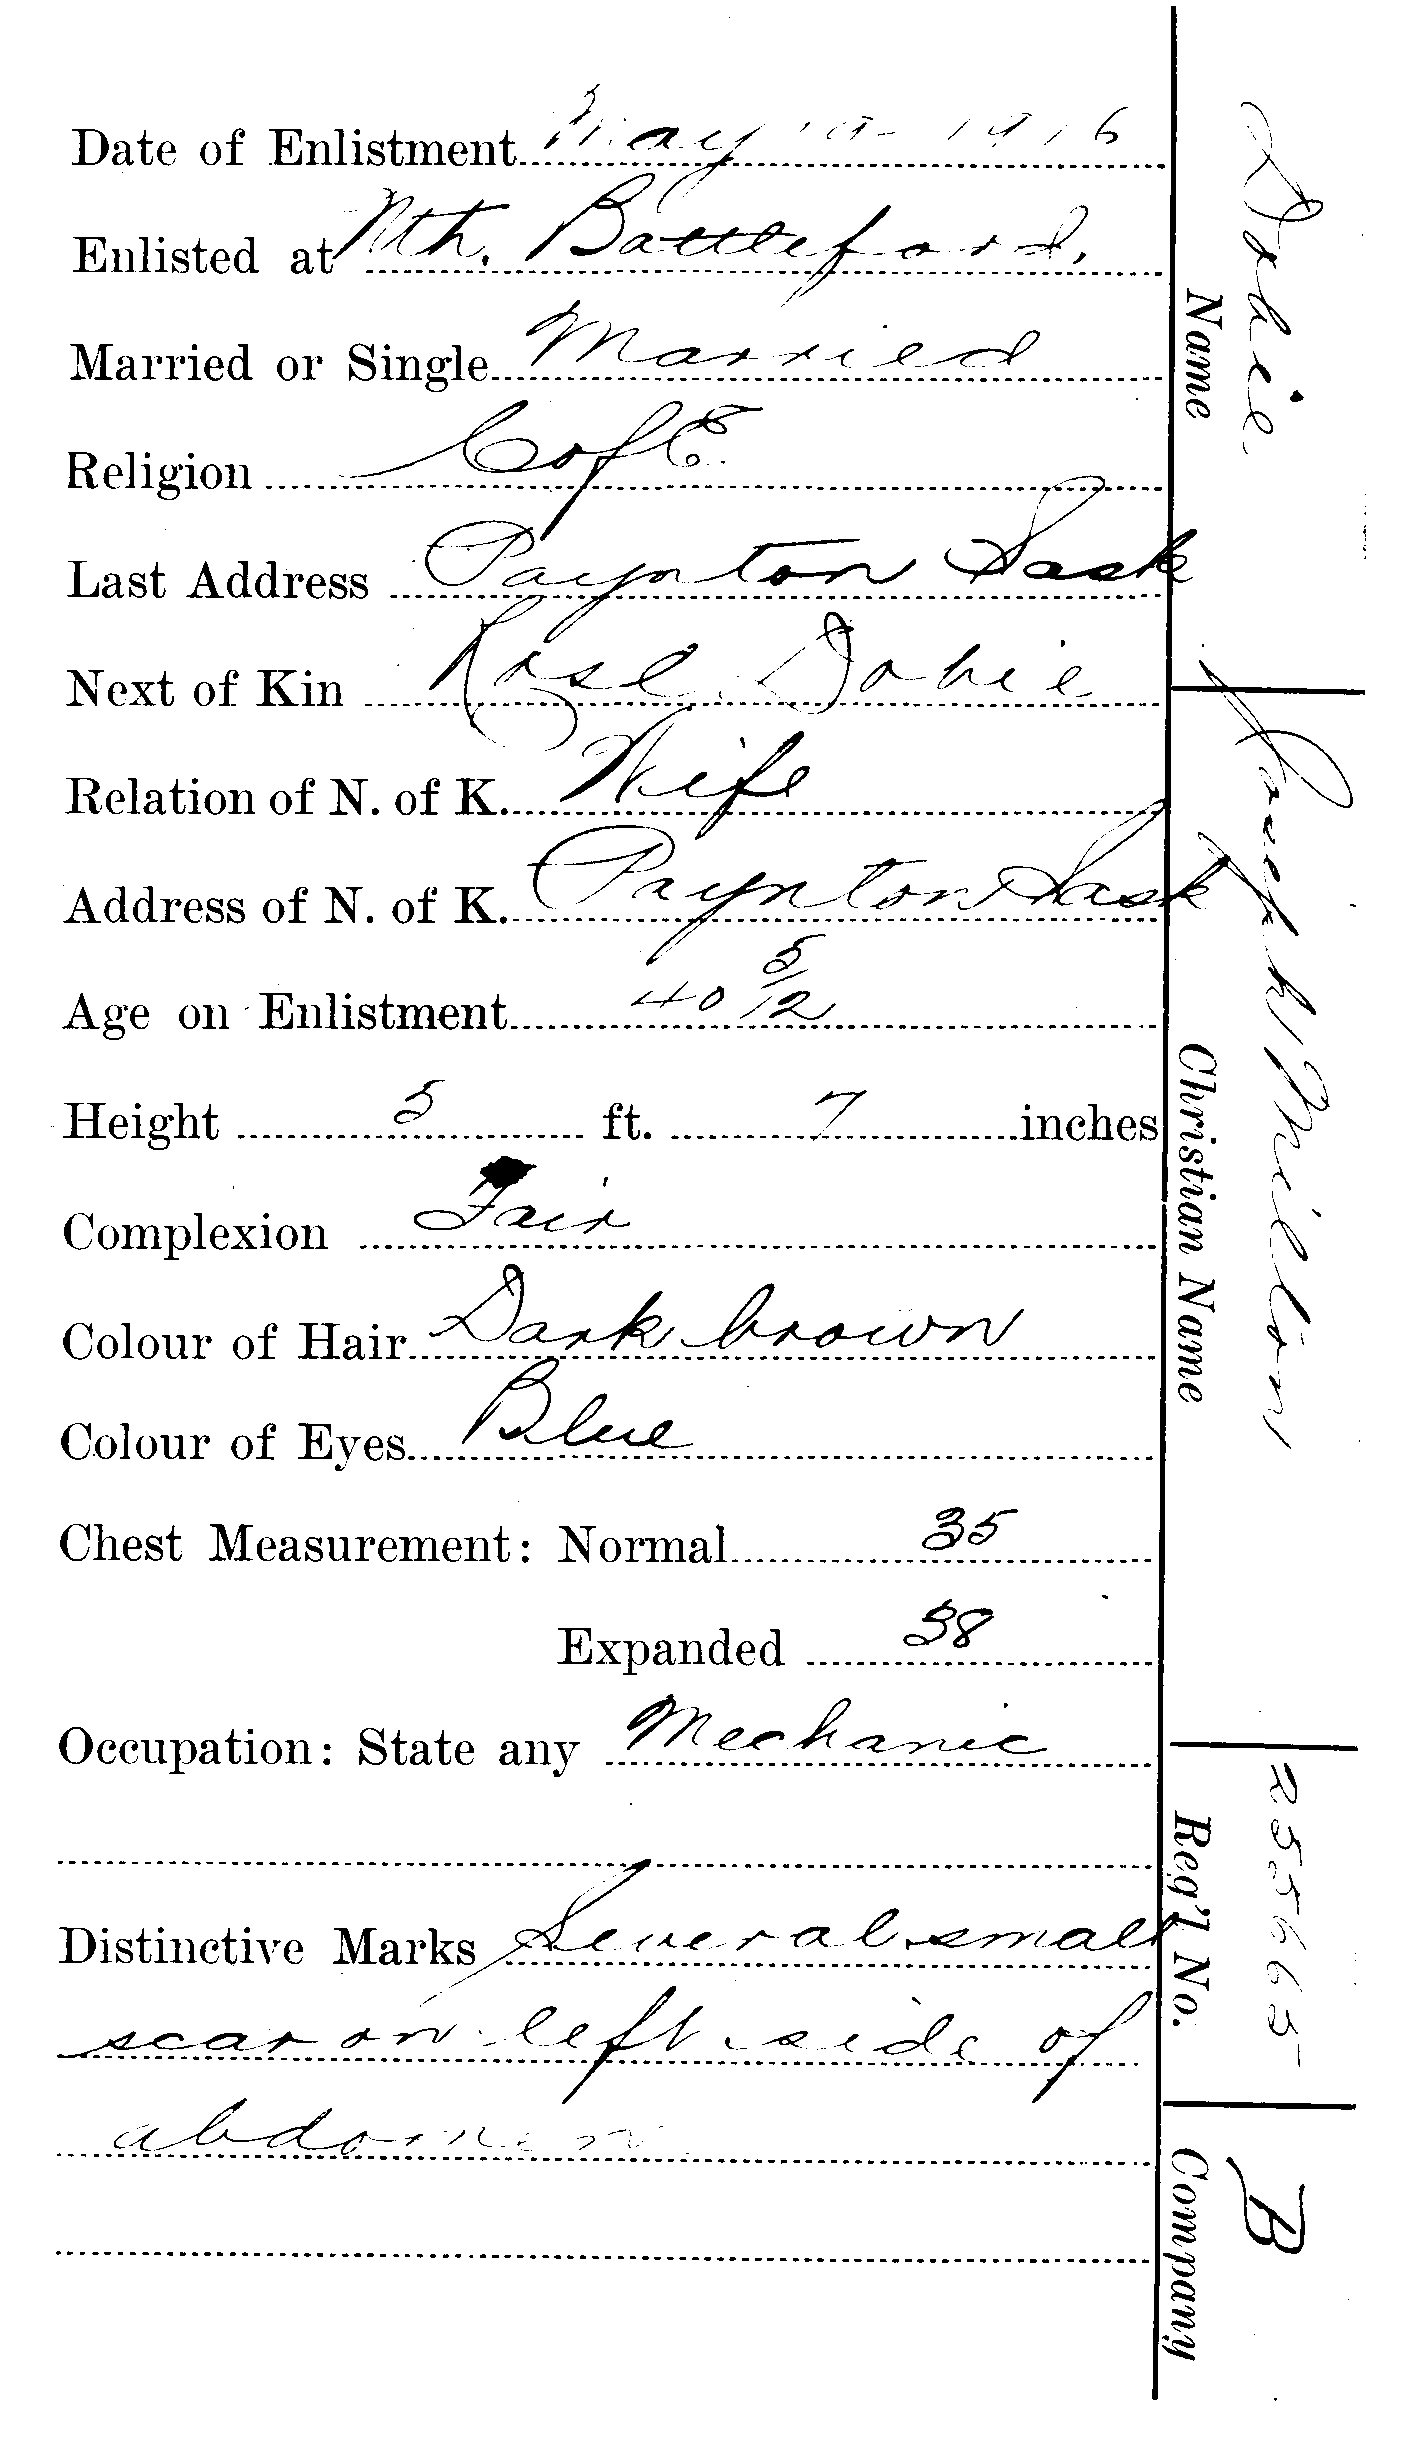 Date of Enlistment May 1916
Enlisted at Nth. Battleford.
Married or Single Married
Religion C of E.
Last Address Paynton Sask
Next of Kin Rose Dobie
Relation of N. of K. Wife
Address of N. of K. Paynton Sask
Age on Enlistment 40 5/12
Height 5 ft. 7 inches
Complexion Fair
Colour of Hair Dark brown
Colour of Eyes Blue
Chest Measurement: Normal 35
Expanded 38
Occupation: State any Mechanic
Distinctive Marks Several small
scar on left side of
abdomen
Name Dobie.
Christian Name Joseph Milton
Reg'l No. 255665
Company B